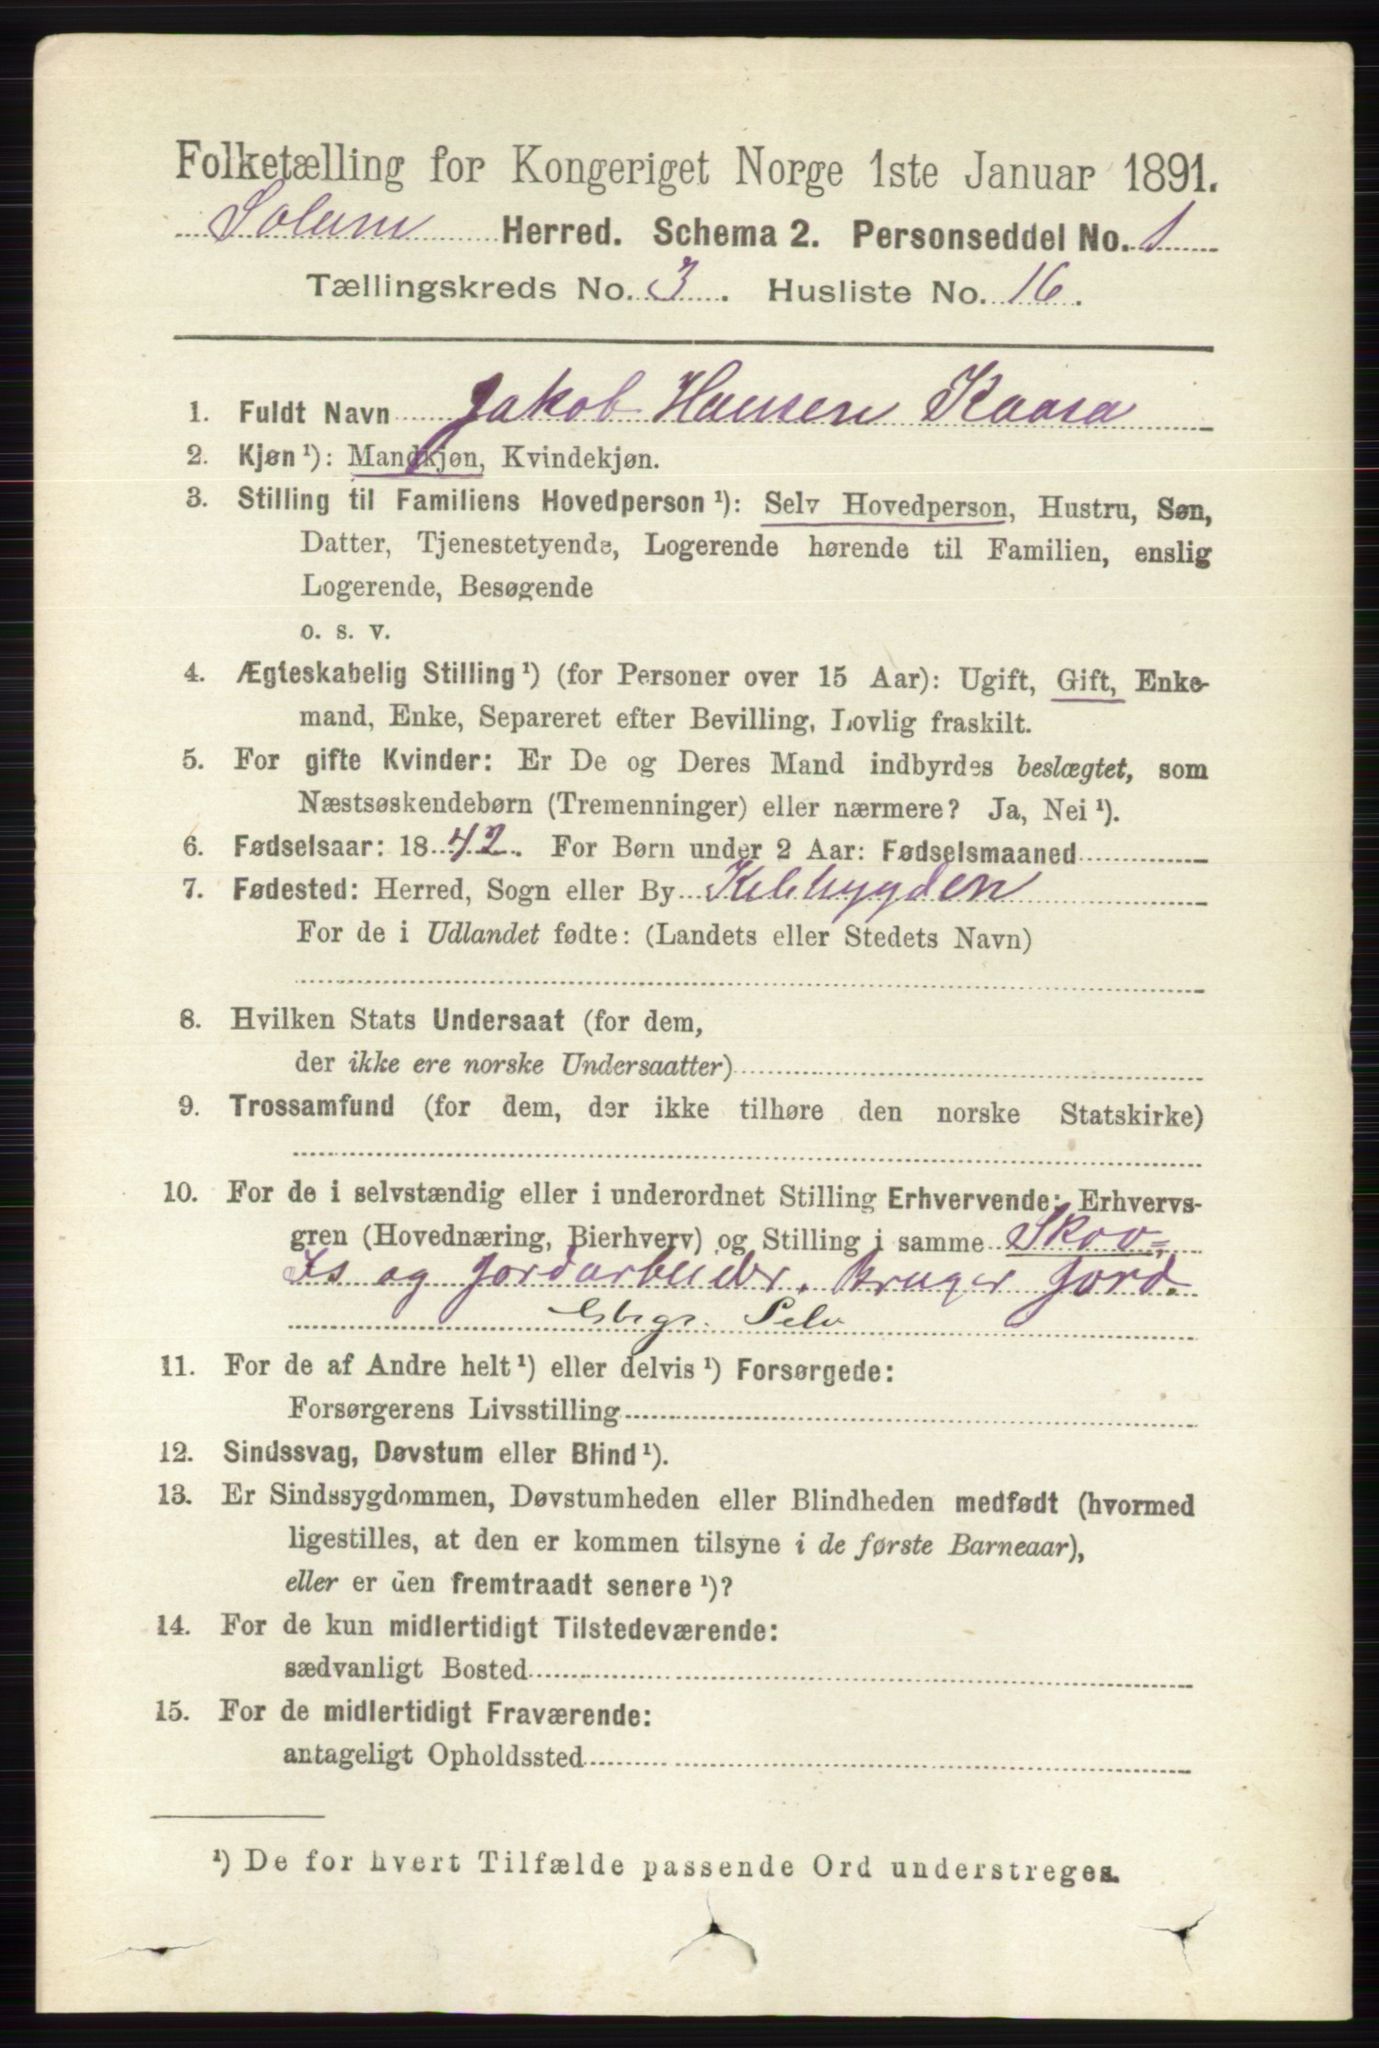 Folketælling for Kongeriget Norge 1ste Januar 1891.
Solum Herred. Schema 2. Personseddel No. 1
Tællingskreds No. 3. Husliste No. 16.
1. Fuldt Navn Jakob Hansen Kaasa
2. Kjøn ¹): Mandkjøn, Kvindekjøn.
3. Stilling til Familiens Hovedperson ¹): Selv Hovedperson, Hustru, Søn,
Datter, Tjenestetyende, Logerende hørende til Familien, enslig
Logerende, Besøgende
o. s. v.
4. Ægteskabelig Stilling ¹) (for Personer over 15 Aar): Ugift, Gift, Enke-
mand, Enke, Separeret efter Bevilling, Lovlig fraskilt.
5. For gifte Kvinder: Er De og Deres Mand indbyrdes beslægtet, som
Næstsøskendebørn (Tremenninger) eller nærmere? Ja, Nei ¹).
6. Fødselsaar: 1842. For Børn under 2 Aar: Fødselsmaaned
7. Fødested: Herred, Sogn eller By Kilebygden
For de i Udlandet fødte: (Landets eller Stedets Navn)
8. Hvilken Stats Undersaat (for dem,
der ikke ere norske Undersaatter)
9. Trossamfund (for dem, der ikke tilhøre den norske Statskirke)
10. For de i selvstændig eller i underordnet Stilling Erhvervende: Erhvervs-
gren (Hovednæring, Bierhverv) og Stilling i samme Skov=,
Is og Jordarbeider. bruger Jord.
Selv
11. For de af Andre helt ¹) eller delvis ¹) Forsørgede:
Forsørgerens Livsstilling
12. Sindssvag, Døvstum eller Blind ¹).
13. Er Sindssygdommen, Døvstumheden eller Blindheden medfødt (hvormed
ligestilles, at den er kommen tilsyne i de første Barneaar),
eller er den fremtraadt senere ¹)?
14. For de kun midlertidigt Tilstedeværende:
sædvanligt Bosted
15. For de midlertidigt Fraværende:
antageligt Opholdssted
¹) De for hvert Tilfælde passende Ord understreges.